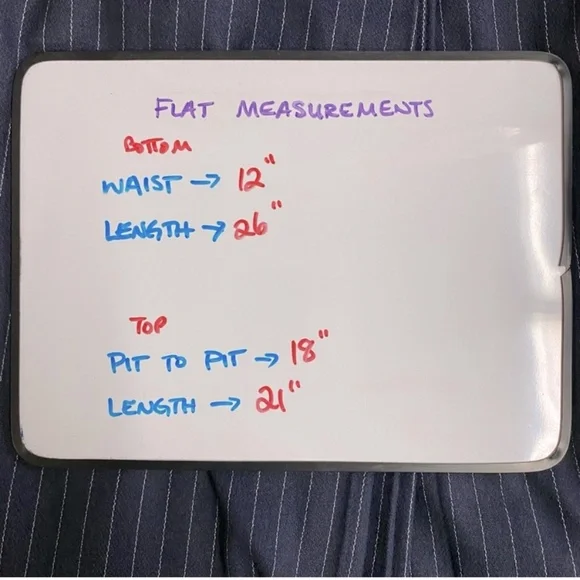 FLAT MEASUREMENTS
BOTTOM
WAIST → 12"
LENGTH → 26"
TOP
PIT TO PIT → 18"
LENGTH → 21"